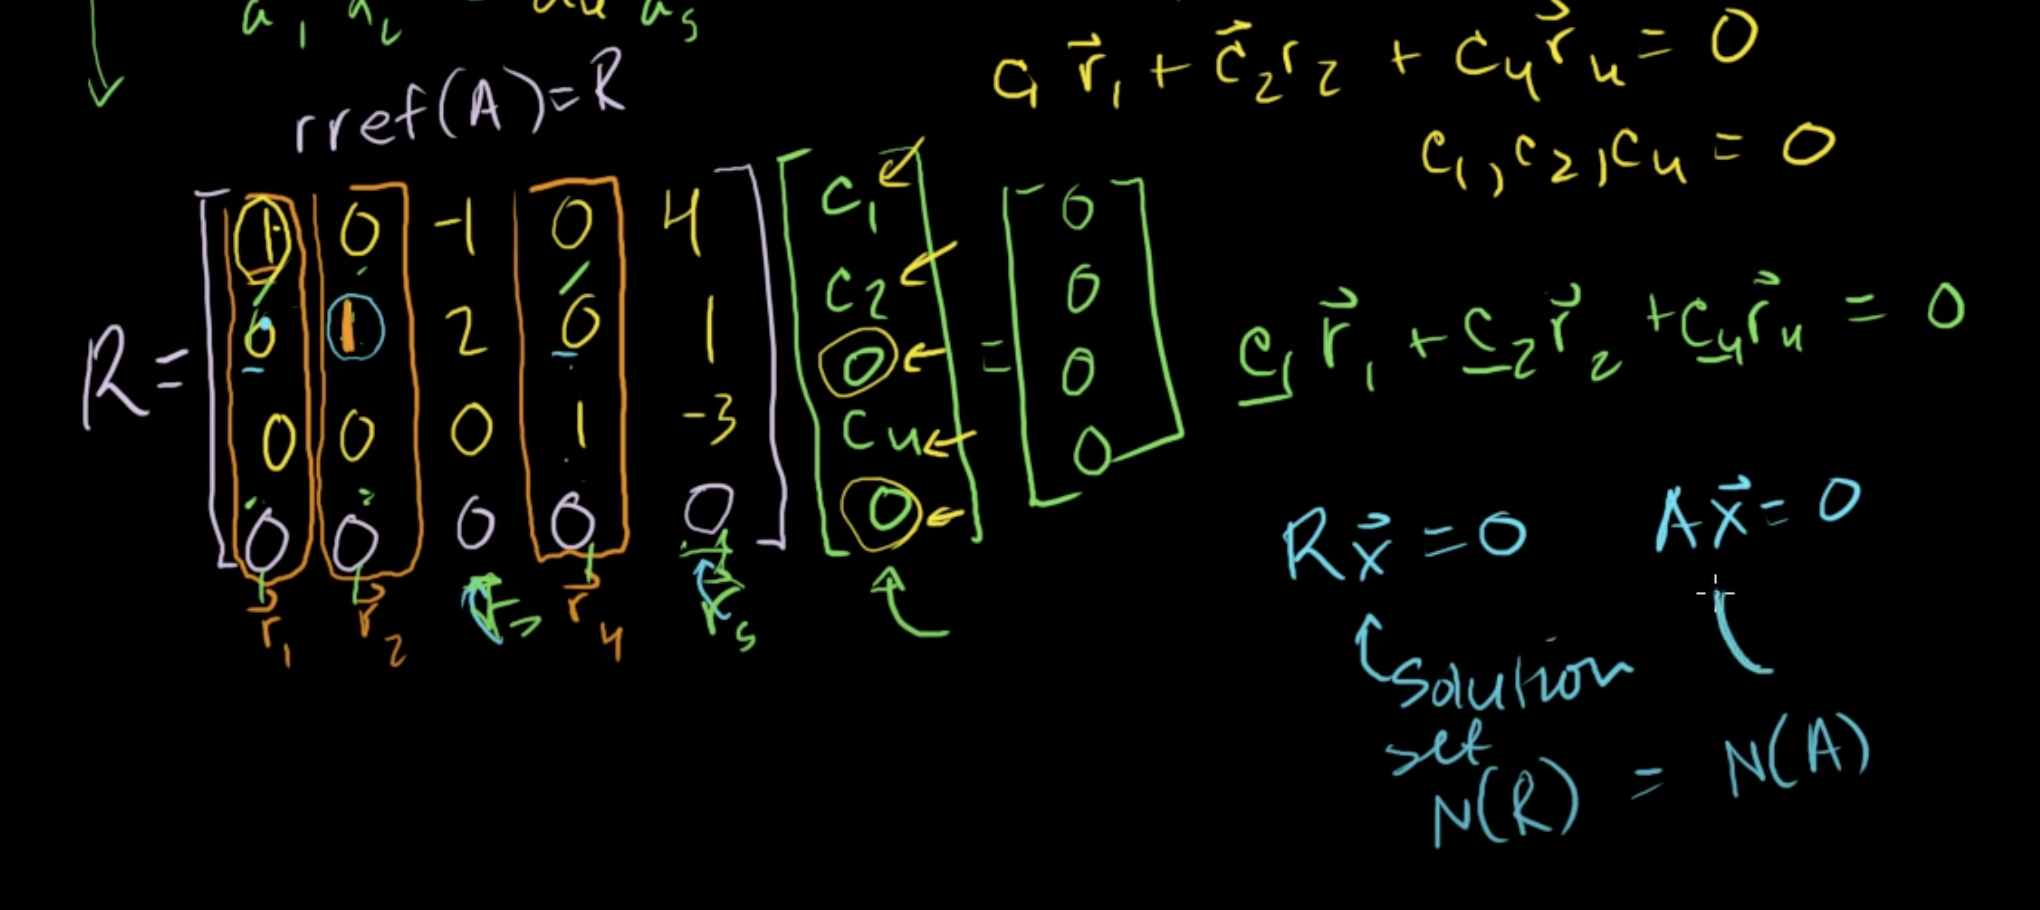 a₁ a₂ a₄ a₅
rref(A)=R
c₁ r⃗₁ + c⃗₂r₂ + c₄r⃗₄ = 0
c₁, c₂, c₄ = 0
R = [1 0 -1 0 4 [c₁ [0
0 1 2 0 1 c₂ 0
0 0 0 1 -3 0 = 0
0 0 0 0 0] c₄ 0]
0]
r⃗₁ r⃗₂ r⃗₄ r⃗₅
c₁ r⃗₁ + c₂ r⃗₂ + c₄r⃗₄ = 0
Rx⃗ = 0 Ax⃗ = 0
solution
set
N(R) = N(A)